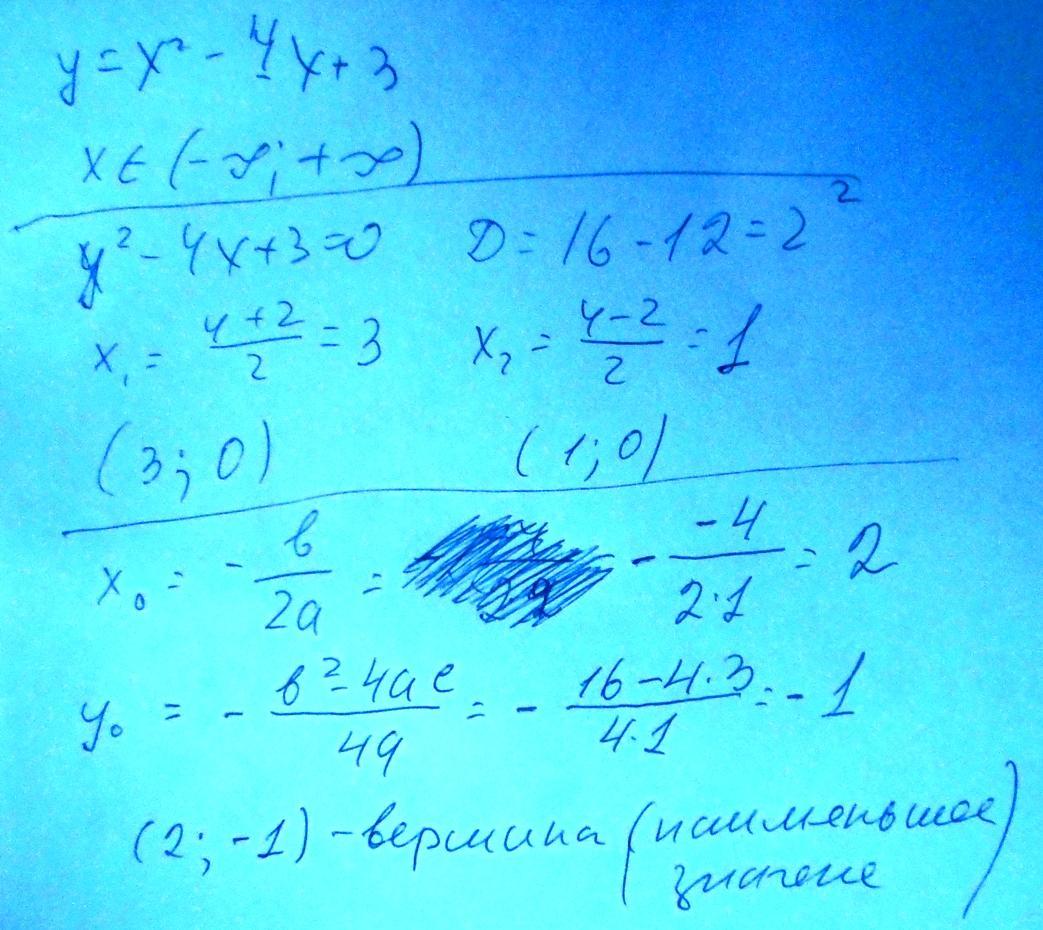 y = x² - 4x + 3
x ∈ (-∞; +∞)
y² - 4x + 3 = 0 D = 16 - 12 = 2²
x₁ = (4+2)/2 = 3 x₂ = (4-2)/2 = 1
(3; 0) (1; 0)
x₀ = - b/2a = - -4/2·1 = 2
y₀ = - b²-4ac/4a = - 16-4·3/4·1 = -1
(2; -1) - вершина (наименьшее
значение)